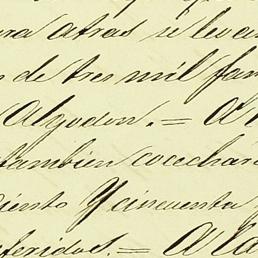 ra atras se leva
de tres mil fan
Algodon. = A
tambien cocechara
iento Y cincuenta
feridos. = A la